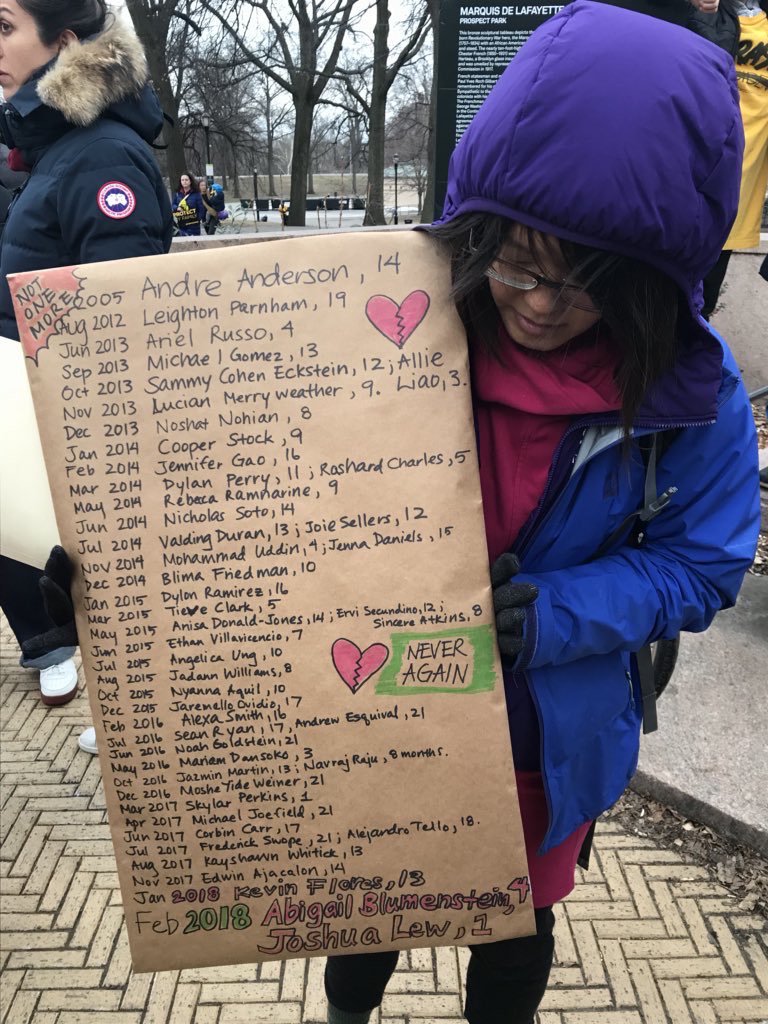 MARQUIS DE LAFAYETTE
PROSPECT PARK
NOT ONE MORE!
2005 Andre Anderson, 14
Aug 2012 Leighton Parnham, 19
Jun 2013 Ariel Russo, 4
Sep 2013 Michael Gomez, 13
Oct 2013 Sammy Cohen Eckstein, 12; Allie Liao, 3.
Nov 2013 Lucian Merryweather, 9.
Dec 2013 Noshat Nohian, 8
Jan 2014 Cooper Stock, 9
Feb 2014 Jennifer Gao, 16
Mar 2014 Dylan Perry, 11; Rashard Charles, 5
May 2014 Rebeca Ramnarine, 9
Jun 2014 Nicholas Soto, 14
Jul 2014 Valding Duran, 13; Joie Sellers, 12
Nov 2014 Mohammad Uddin, 4; Jenna Daniels, 15
Dec 2014 Blima Friedman, 10
Jan 2015 Dylon Ramirez, 16
Mar 2015 Tieve Clark, 5
May 2015 Anisa Donald-Jones, 14; Ervi Secundino, 12; Sincere Atkins, 8
Jun 2015 Ethan Villavicencio, 7
Jul 2015 Angelica Ung, 10
Aug 2015 Jadann Williams, 8
Oct 2015 Nyanna Aquil, 10
Dec 2015 Jaremello Ovidio, 17
Feb 2016 Alexa Smith, 16
Jul 2016 Sean Ryan, 17, Andrew Esquival, 21
Jun 2016 Noah Goldstein, 21
May 2016 Mariam Dansoko, 3
Oct 2016 Jazmin Martin, 13; Navraj Raju, 8 months.
Dec 2016 Moshe Yide Weiner, 21
Mar 2017 Skylar Perkins, 1
Apr 2017 Michael Joefield, 21
Jun 2017 Corbin Carr, 17
Jul 2017 Frederick Swope, 21; Alejandro Tello, 18.
Aug 2017 Kayshawn Whitick, 13
Nov 2017 Edwin Ajacalon, 14
Jan 2018 Kevin Flores, 13
Feb 2018 Abigail Blumenstein, 4
Joshua Lew, 1
NEVER
AGAIN